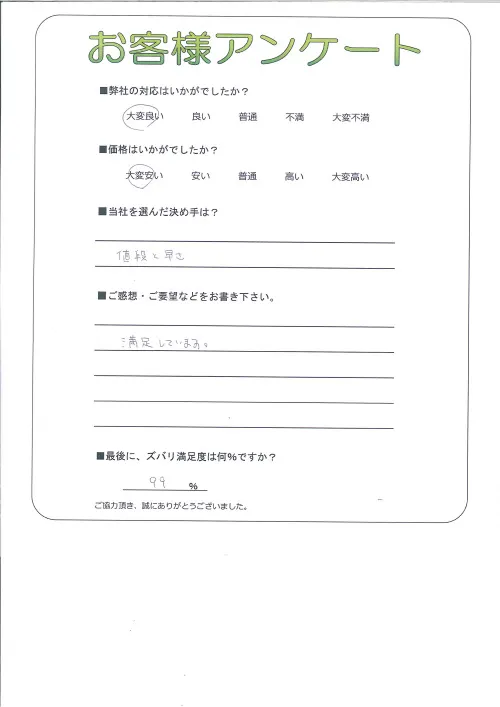 お客様アンケート
■弊社の対応はいかがでしたか？
大変良い 良い 普通 不満 大変不満
■価格はいかがでしたか？
大変安い 安い 普通 高い 大変高い
■当社を選んだ決め手は？
値段と早さ
■ご感想・ご要望などをお書き下さい。
満足しています。
■最後に、ズバリ満足度は何％ですか？
99 ％
ご協力頂き、誠にありがとうございました。